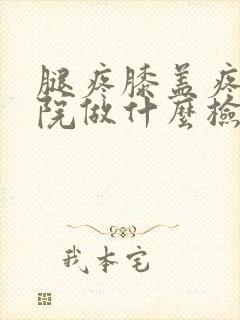 腿疼膝盖疼
院做什麼檢
我本宅